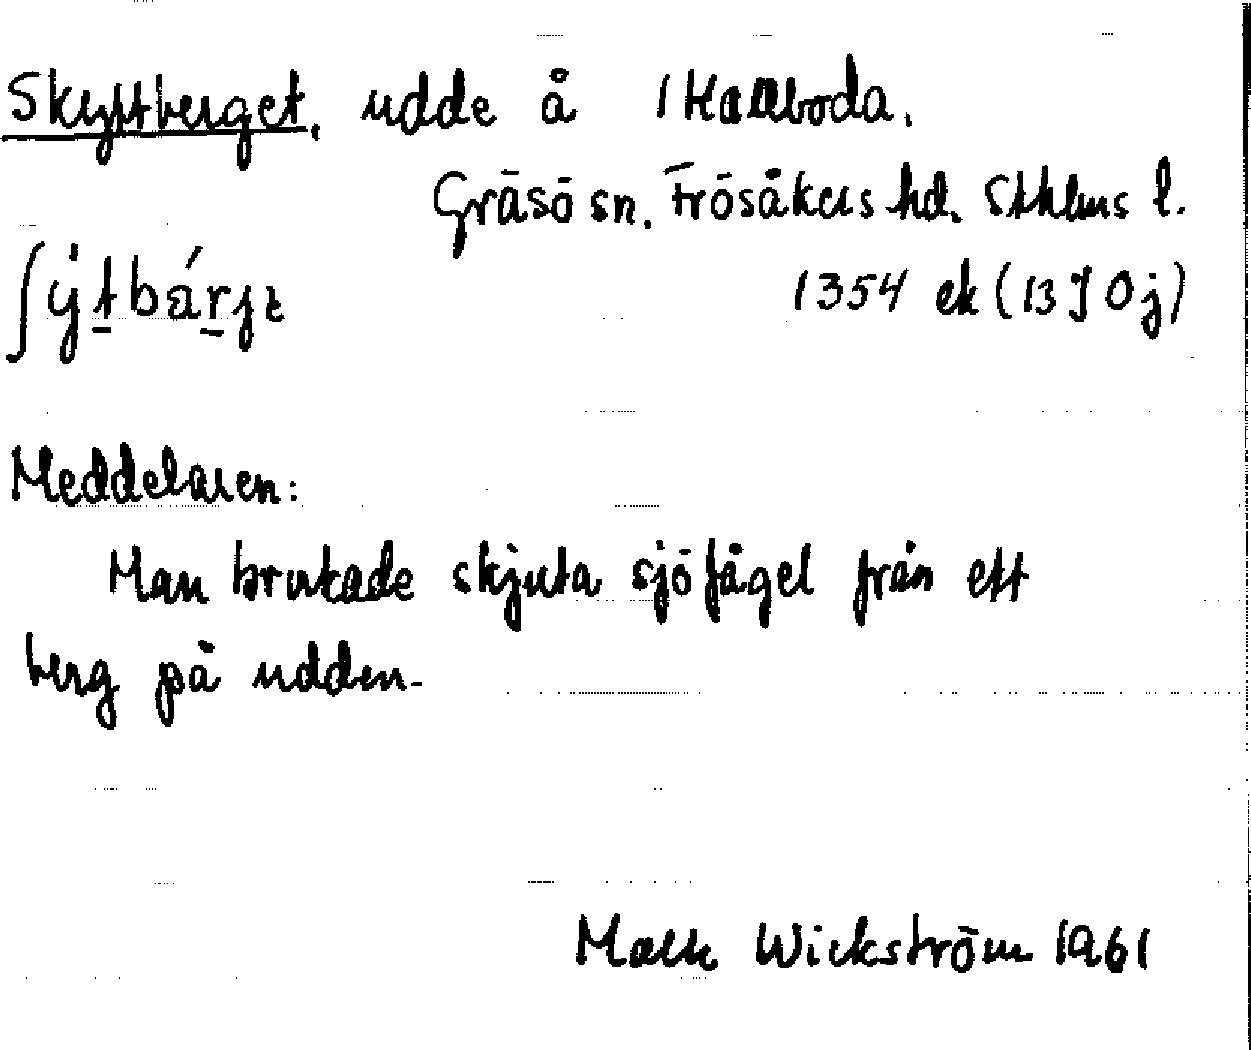 Skyttberget, udde å 1 Hallboda.
Gräsö sn. Frösåkers hd. Sthlms l.
ʃy̍tbárjɛ
1354 ek (13 J 0 j)
Meddelaren:
Man brukade skjuta sjöfågel från ett
berg på udden.
Wickström 1961